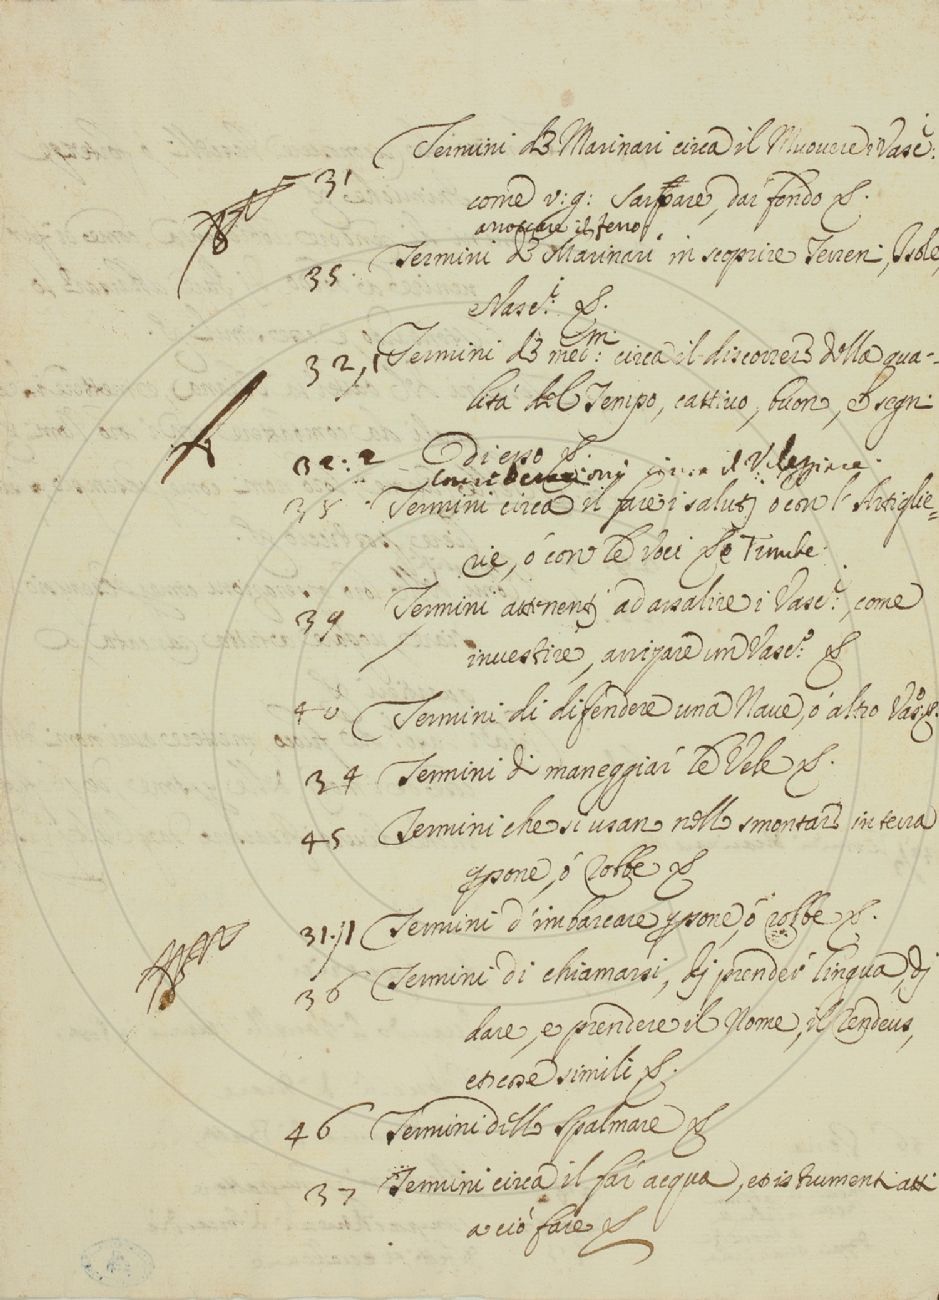 31 Termini de Marinari circa il Muouere i Vasc.i
come v:g: sarpare, dar fondo &.
arroscare il ferro
35 Termini de Marinari in scoprire Terren, Isole,
o Vasc.i &.
32,1 Termini de med.mi circa il discorrere della qua-
lità del Tempo, cattiuo, buon, e segn
di esso &.
32:2 Considerazioni circa il Veleggiare.
38 Termini circa il fare i saluti o con l'Artiglie=
rie, ó con le voci &e Trumbe.
39 Termini attenenti ad assalire i Vasc.i, come
inuestire, arriuare un Vasc.o &
40 Termini di difendere una Naue, ó altro Vas.o &.
34 Termini di maneggiar le Vele &.
45 Termini che si usan nello smontare in terra
p.sone, ó robbe &
31.11 Termini d'imbarcare p.sone, ó robbe &.
36 Termini di chiamarsi, di prender lingua, di
dare, e prendere il Nome, il Rendeus,
et cose simili &.
46 Termini dello spalmare &
37 Termini circa il far acqua, et istrumenti atti
a ció fare &